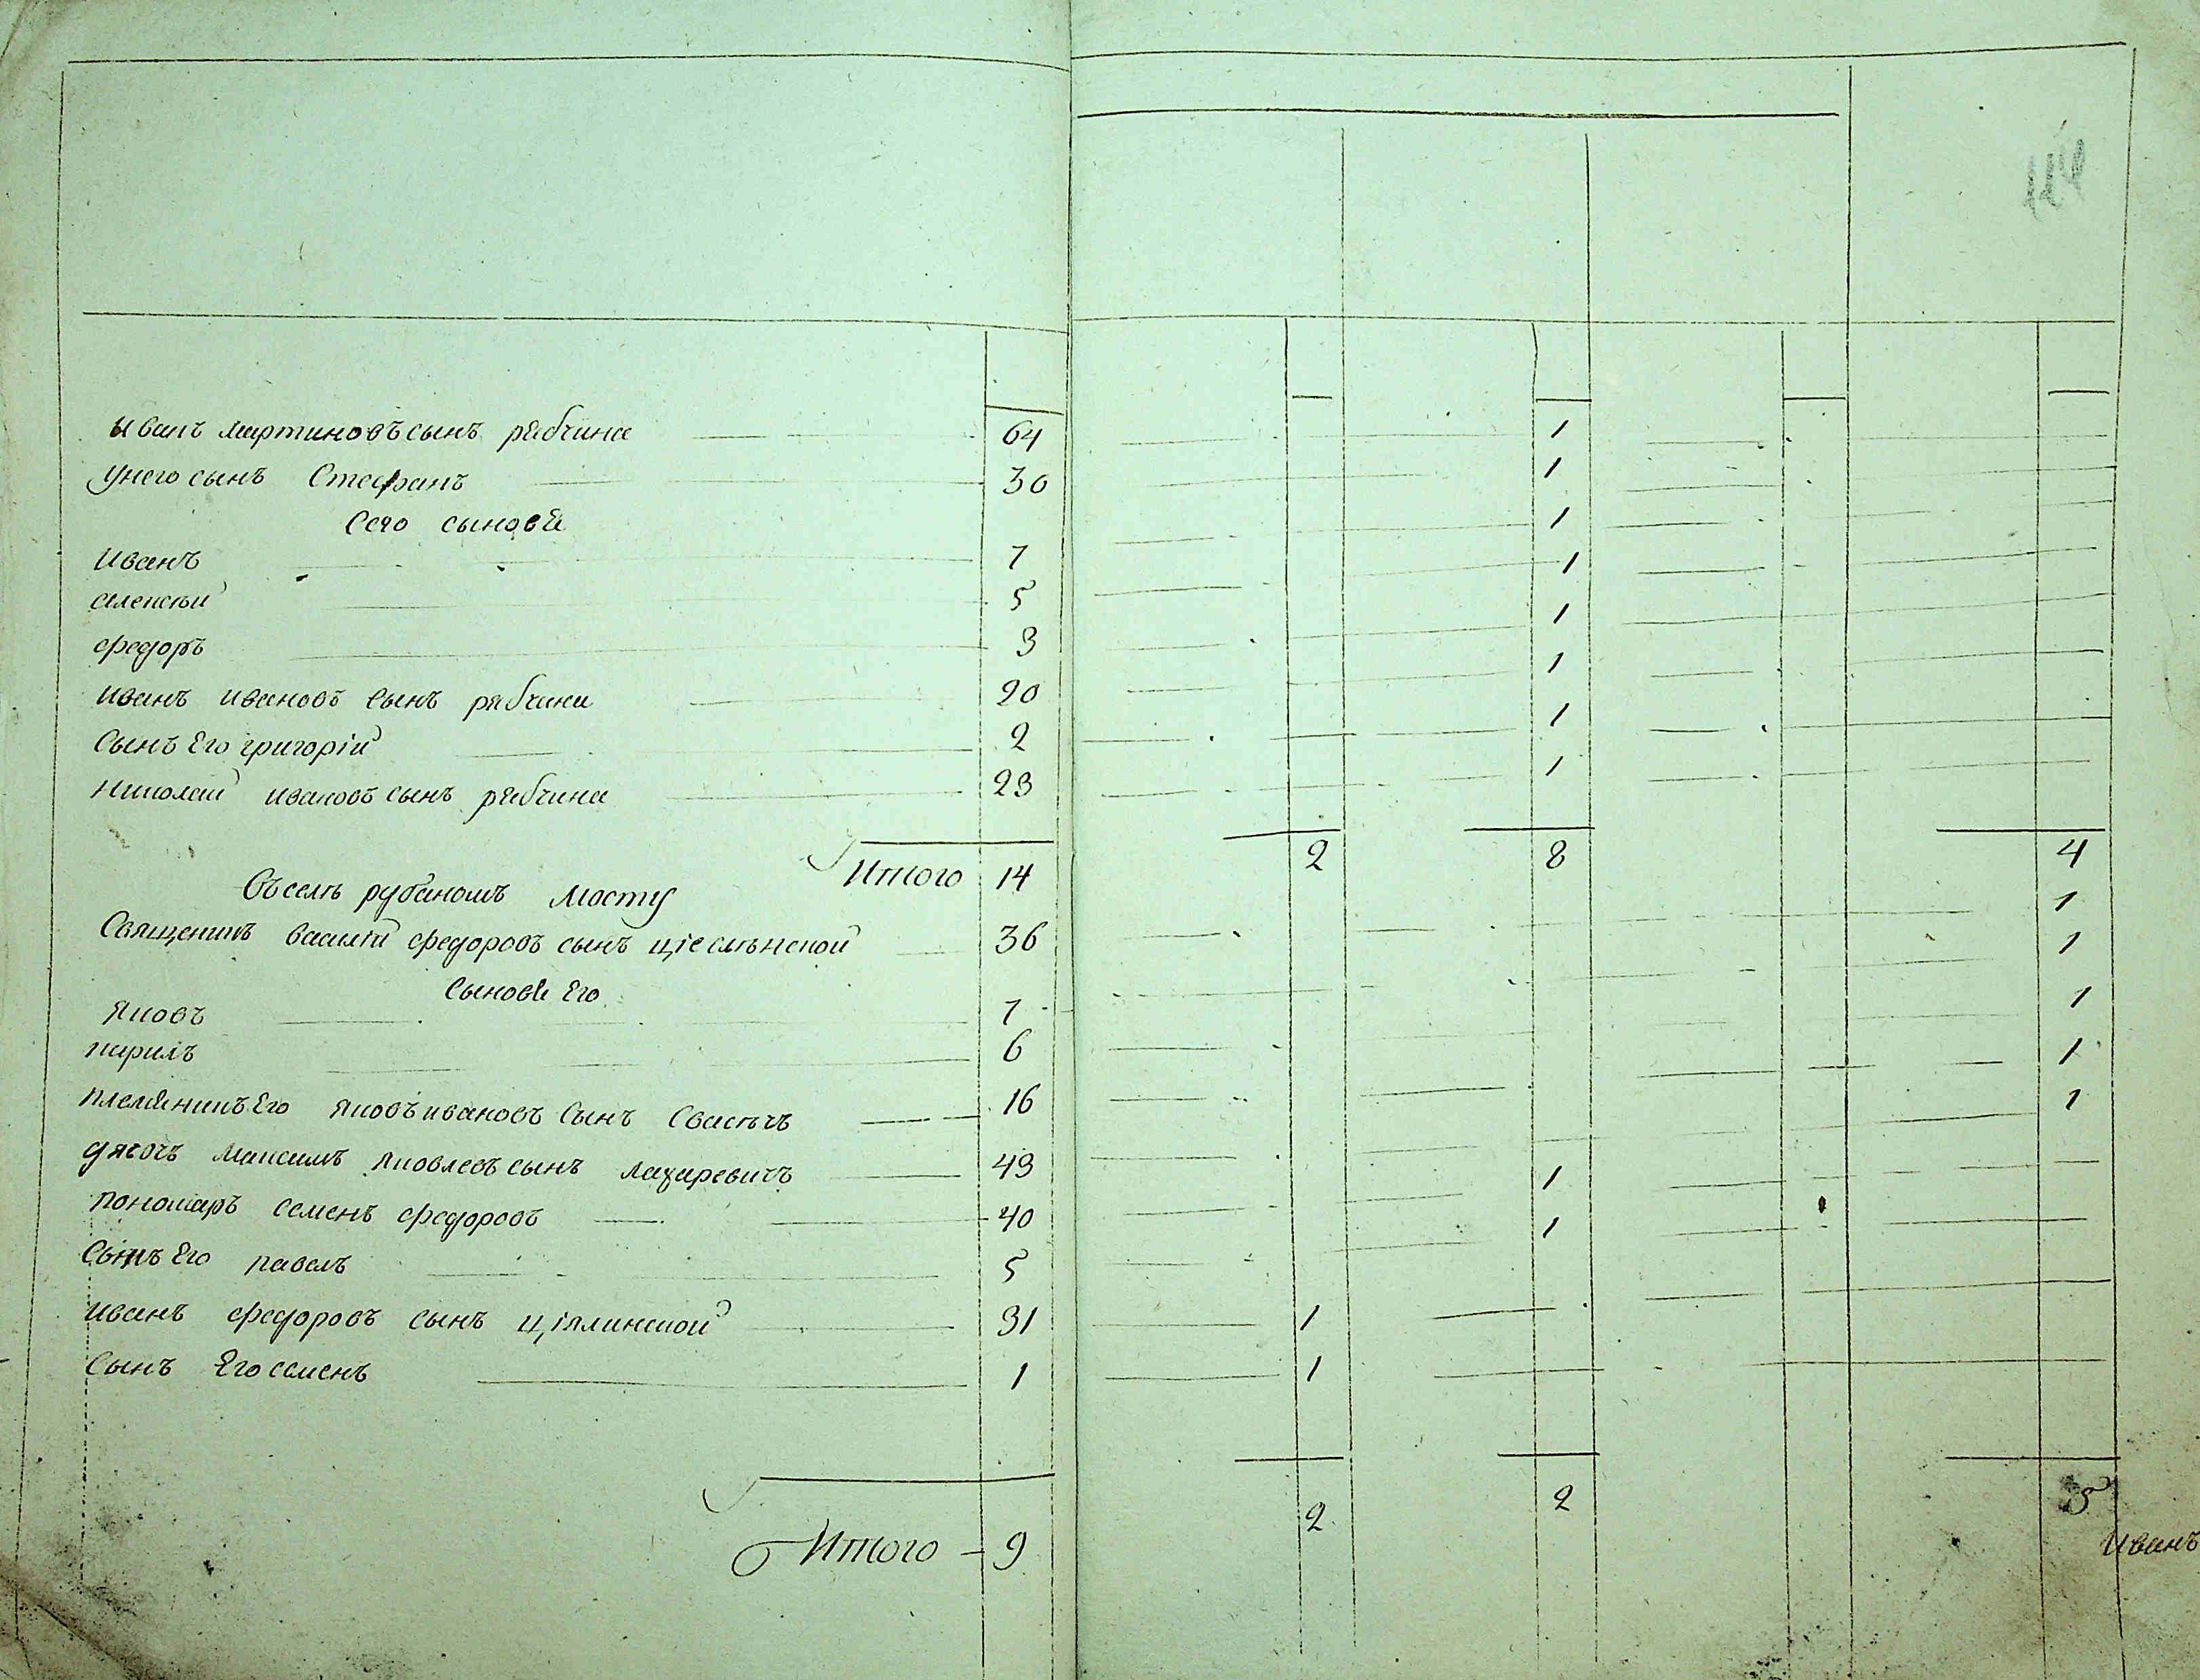 114
Иванъ мартиновъ сынъ рябчина 64 1
Унего сынъ Стефанъ 30 1
Сего сыновя 1
иванъ 7 1
алексъи 5 1
федоръ 3 1
иванъ ивановъ сынъ рябчина 20 1
Сынъ Его григоріи 2 1
николаи ивановъ сынъ рябчина 23
Итого 14 2 8 4
Въселъ рубаномъ мосту 1
Священикъ василіи федоровъ сынъ 36 1
Сыновя Его 1
яковъ 7
кирилъ 6 1
племяникъ Его яковъ ивановъ Сынъ 16 1
дячокъ максимъ яковлевъ сынъ лазаревичъ 43 1
пономаръ семенъ федоровъ 40 1
Сынъ Его павелъ 5
иванъ федоровъ сынъ 31 1
Сынъ Его семенъ 1 1
Итого 9 2 2 5
иванъ